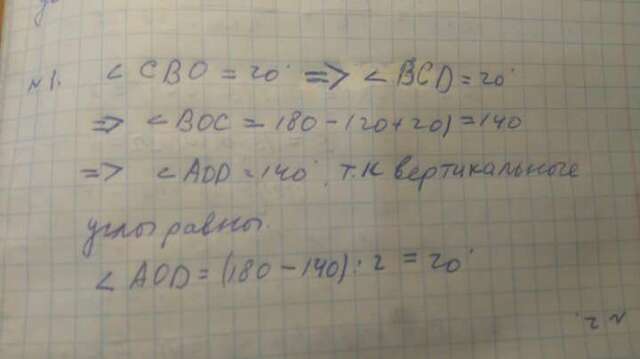 N1. ∠CBO = 20° => ∠BCD = 20°
=> ∠BOC = 180 - (20+20) = 140
=> ∠AOD = 140°, т.к вертикальные
углы равны.
∠AOD = (180 - 140) : 2 = 20°